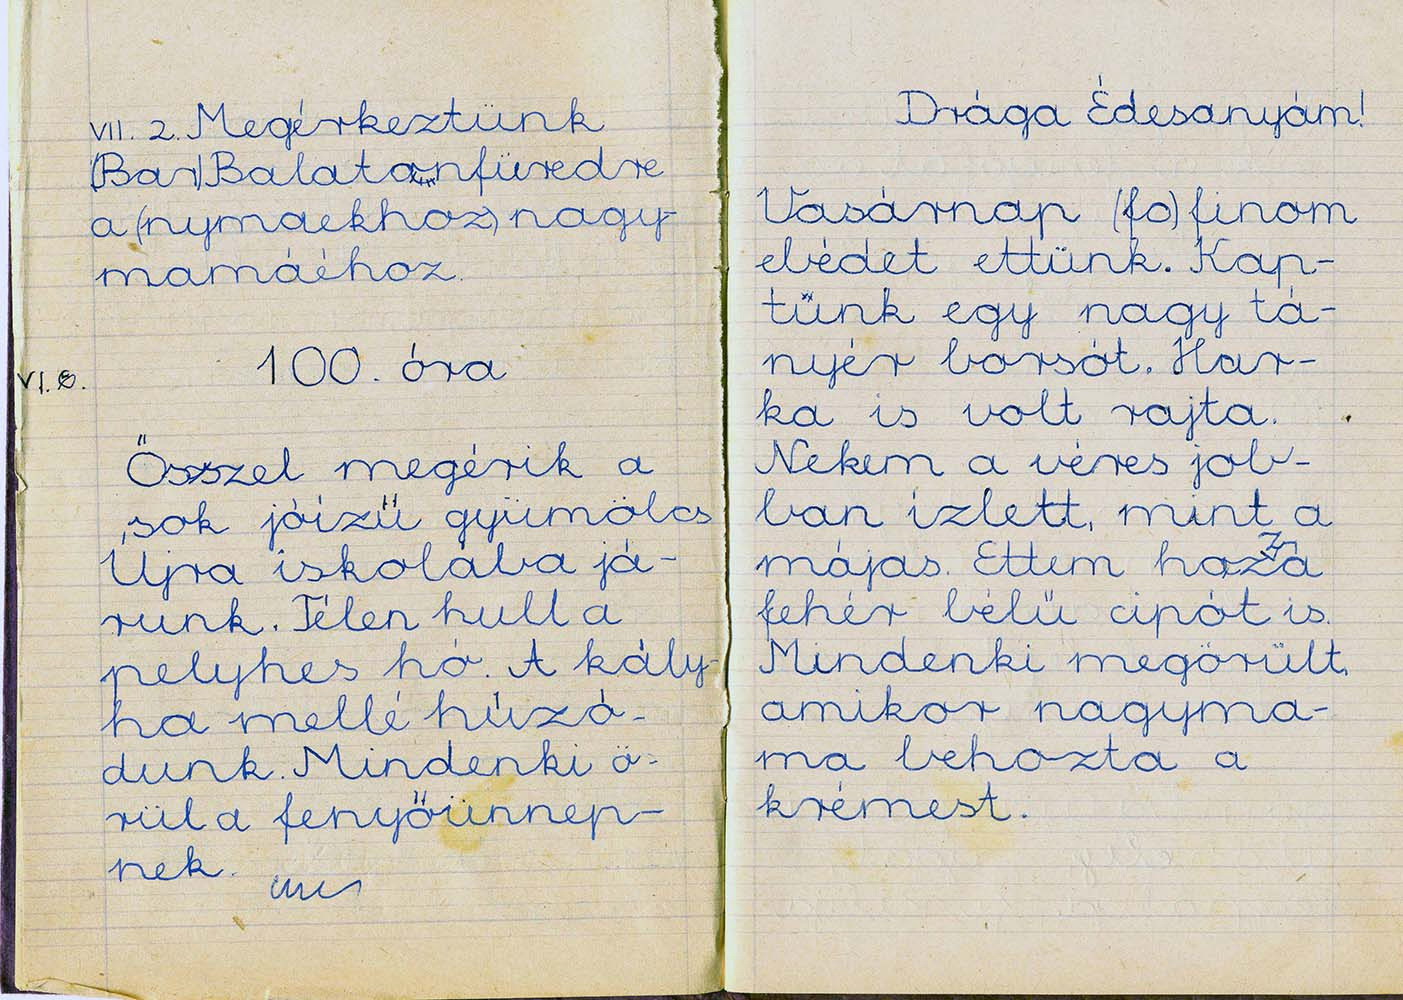 VII. 2. Megérkeztünk
(Bar) Balatonfüredre
a (nymaekhoz) nagy-
mamáéhoz.
VI. 8. 100. óra
Ősszel megérik a
sok jóízű gyümölcs
Újra iskolába já-
runk. Télen hull a
pelyhes hó. A kály-
ha mellé húzó-
dunk. Mindenki ö-
rül a fenyőünnep-
nek.
Drága Édesanyám!
Vasárnap (fo) finom
ebédet ettünk. Kap-
tunk egy nagy tá-
nyér borsót. Hur-
ka is volt rajta.
Nekem a véres job-
ban ízlett, mint a
májas. Ettem hozzá
fehér bélű cipót is.
Mindenki megörült,
amikor nagyma-
ma behozta a
krémest.